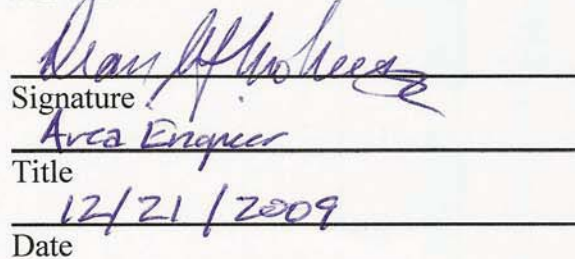 Dean
Signature
Area Engineer
Title
12/21/2009
Date